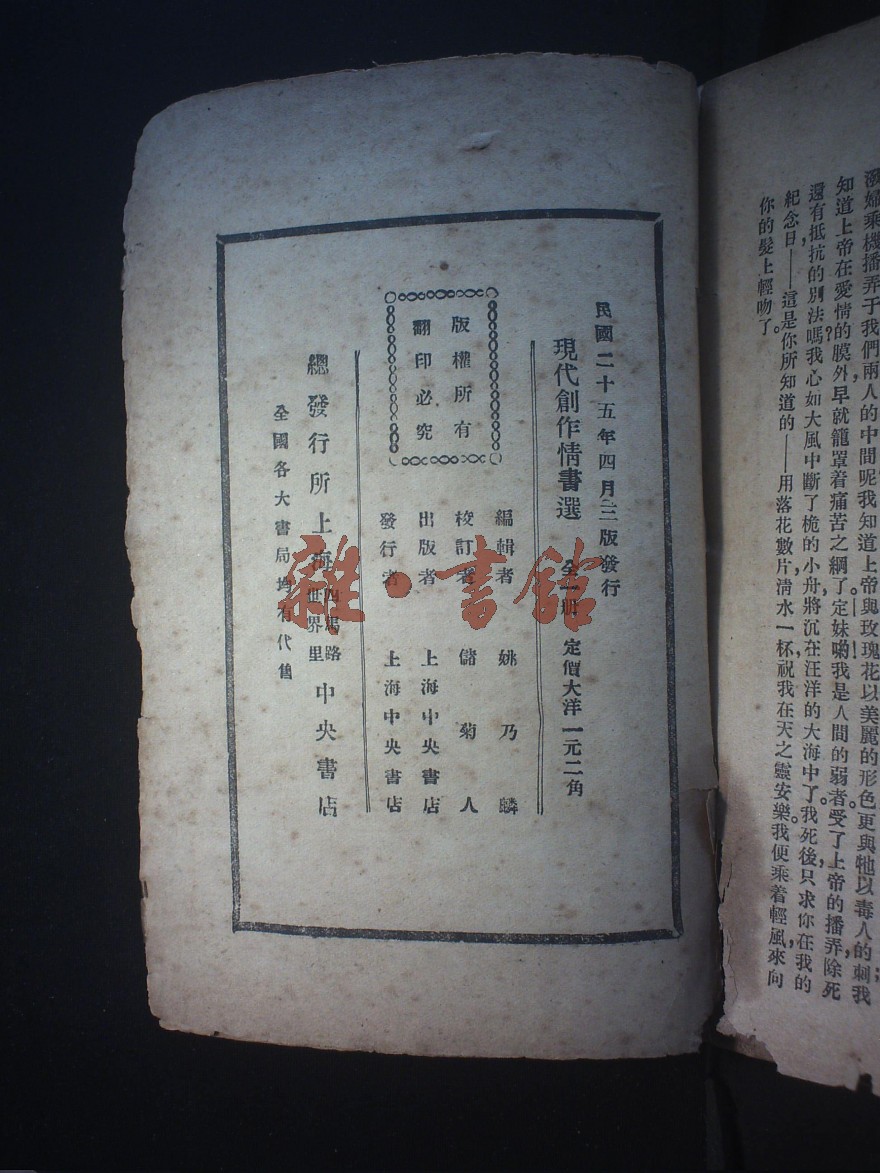 潑婦乘機播弄于我們兩人的中間呢我知道上帝與玫瑰花以美麗的形色更與牠以毒人的刺我
知道上帝在愛情的膜外早就籠罩着痛苦之網了定妹喲我是人間的弱者受了上帝的播弄除死
還有抵抗的別法嗎我心如大風中斷了桅的小舟將沉在汪洋的大海中了我死後只求你在我的
紀念日——這是你所知道的——用落花數片清水一杯祝我在天之靈安樂我便乘着輕風來向
你的髮上輕吻了。
民國二十五年四月三版發行
現代創作情書選 全一冊 定價大洋一元二角
版權所有
翻印必究
編輯者 姚乃麟
校訂者 儲菊人
出版者 上海中央書店
發行者 上海中央書店
總發行所上海四馬路世界里中央書店
全國各大書局均有代售
雜·書館